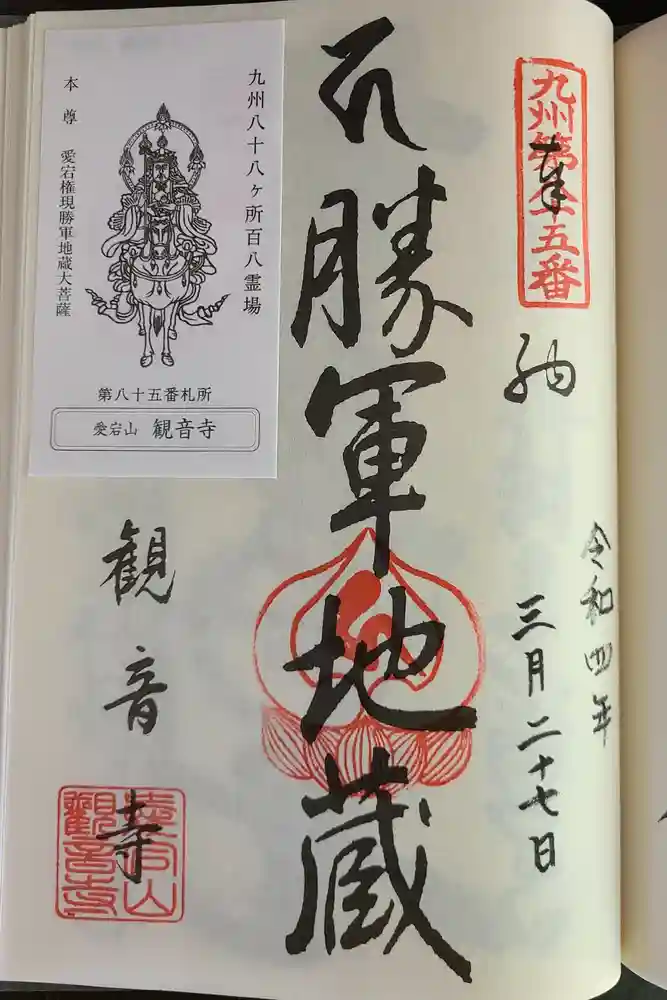 九州第八十五番
奉納
令和四年
三月二十七日
勝軍地蔵
観音寺
愛宕山
觀音寺
九州八十八ヶ所百八霊場
本尊 愛宕権現勝軍地蔵大菩薩
第八十五番札所
愛宕山 観音寺